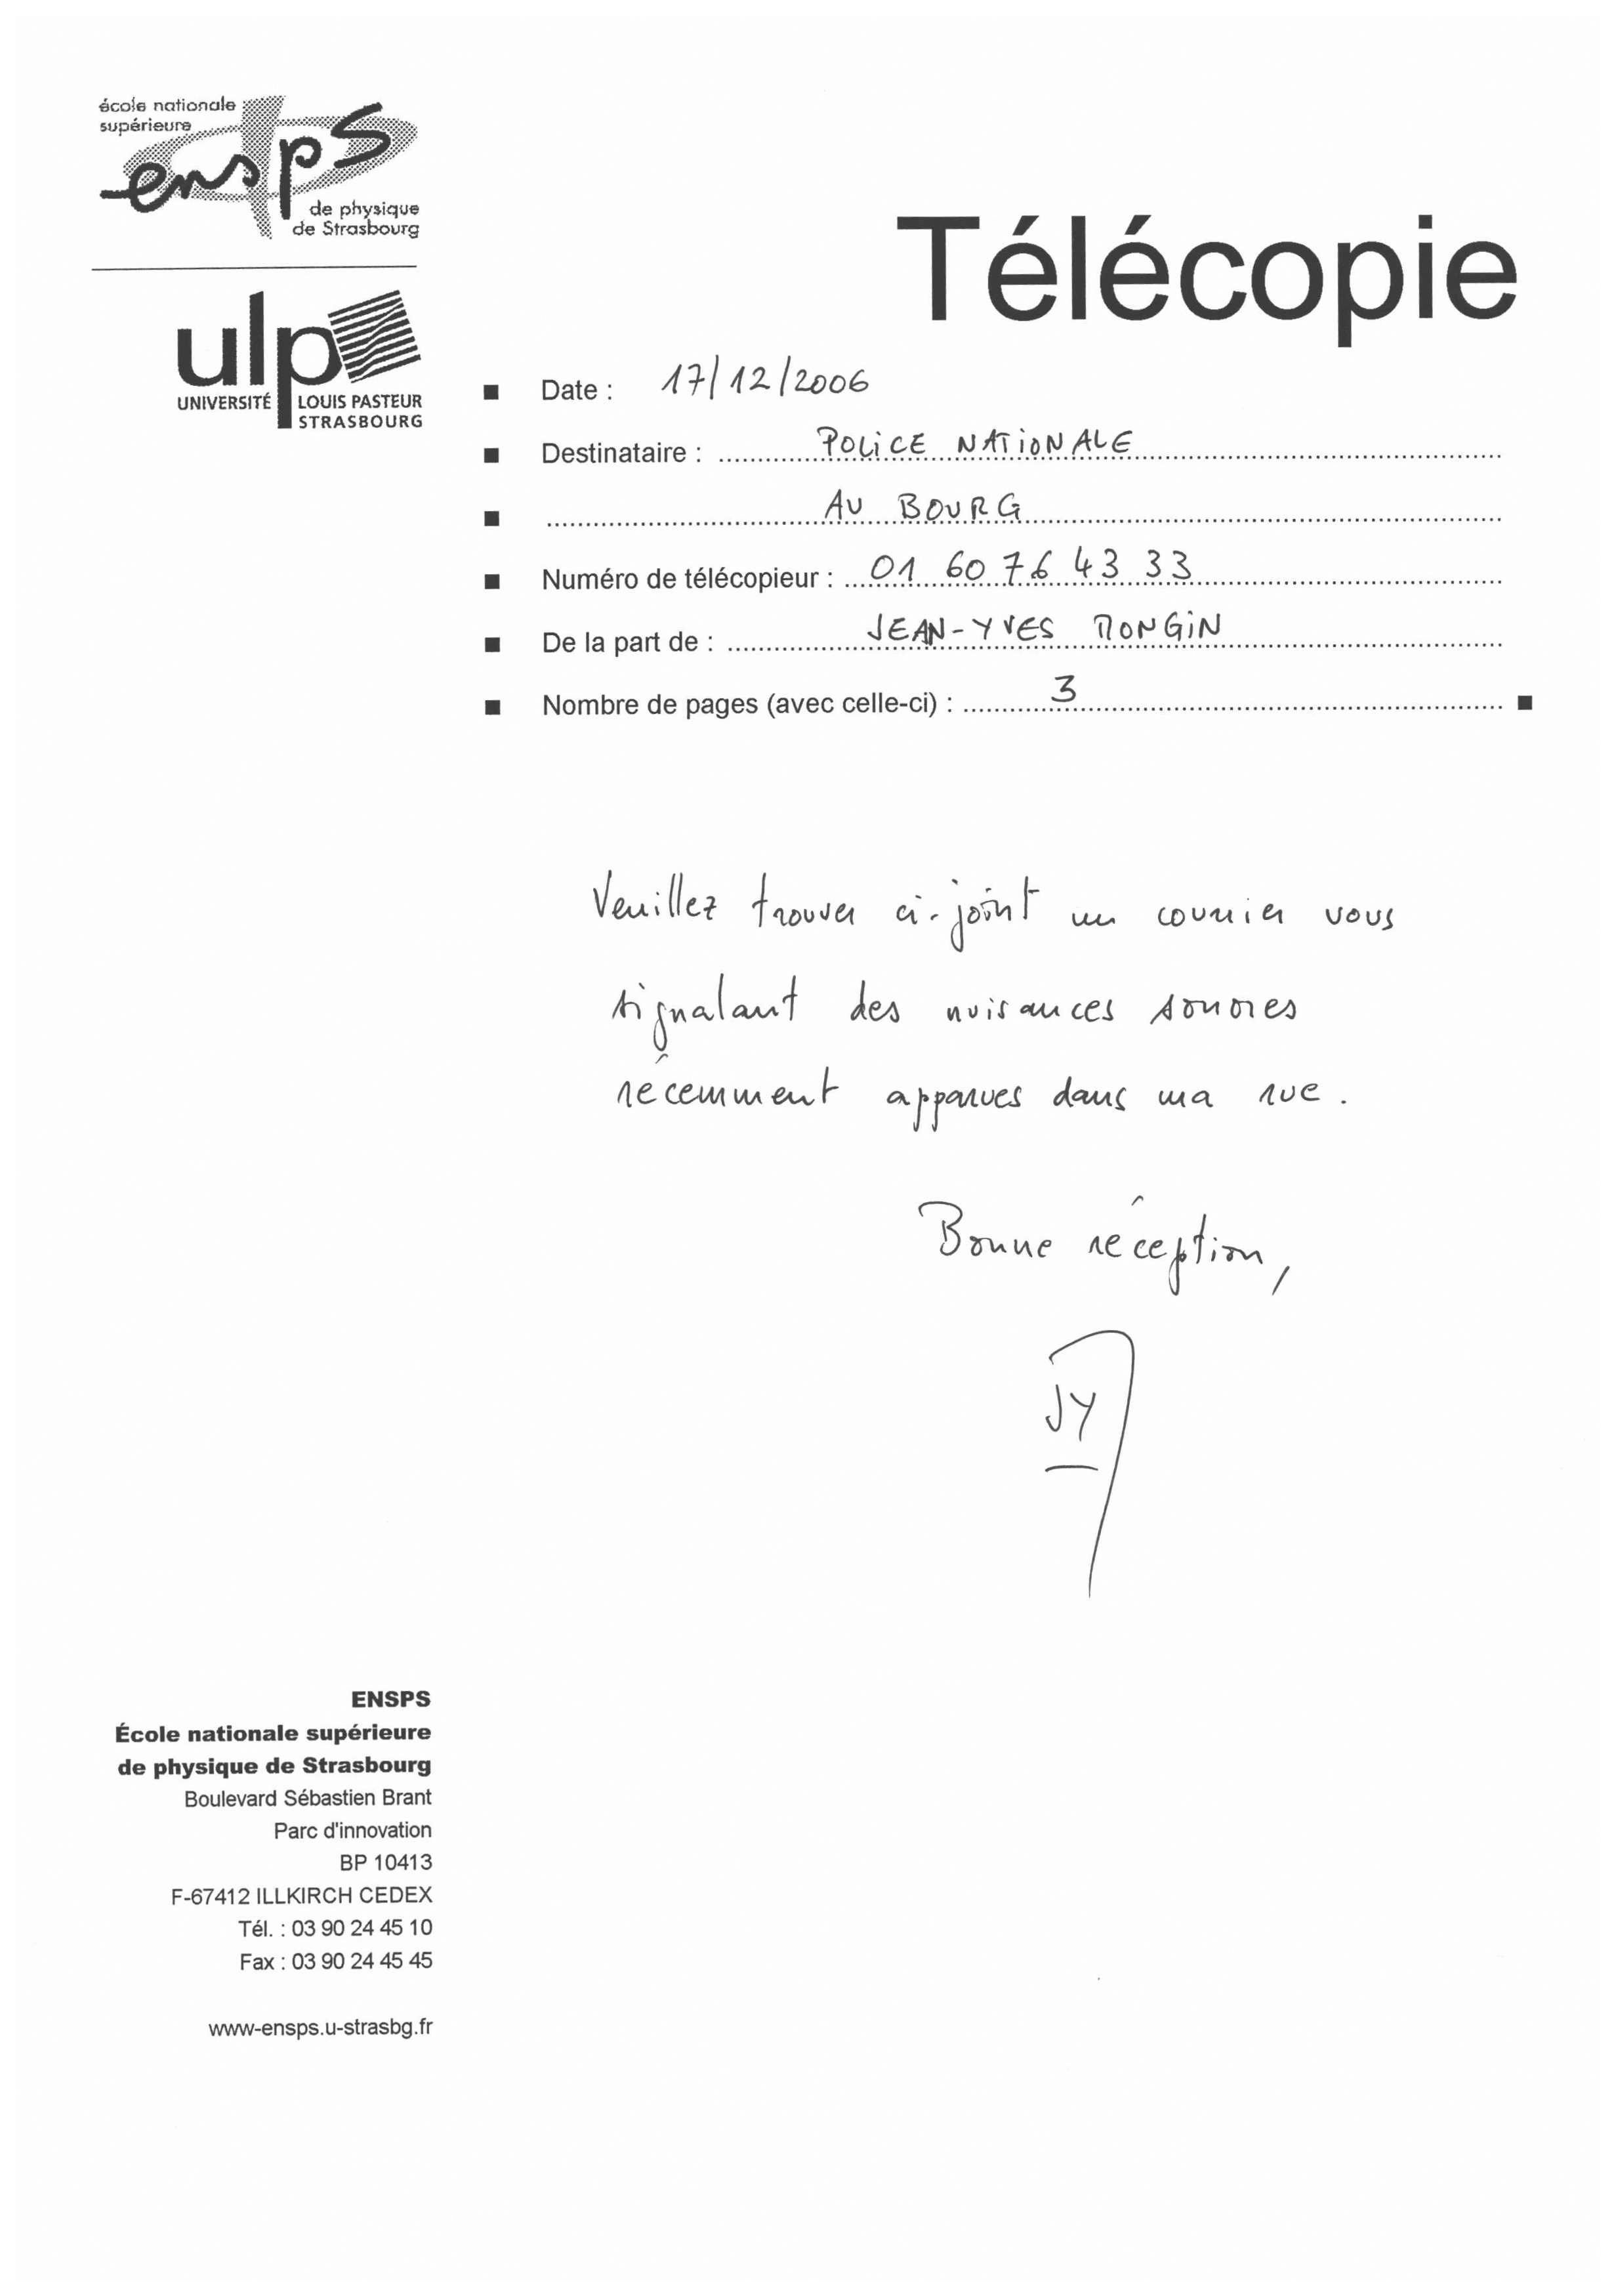 école nationale
supérieure
ensps
de physique
de Strasbourg
ulp
UNIVERSITÉ LOUIS PASTEUR
STRASBOURG
Télécopie
Date : 17/12/2006
Destinataire : POLICE NATIONALE
AU BOURG
Numéro de télécopieur : 01 60 76 43 33
De la part de : JEAN-YVES MONGIN
Nombre de pages (avec celle-ci) : 3
Veuillez trouver ci-joint un courrier vous
signalant des nuisances sonores
récemment apparues dans ma rue.
Bonne réception,
JY
ENSPS
École nationale supérieure
de physique de Strasbourg
Boulevard Sébastien Brant
Parc d'innovation
BP 10413
F-67412 ILLKIRCH CEDEX
Tél. : 03 90 24 45 10
Fax : 03 90 24 45 45
www-ensps.u-strasbg.fr